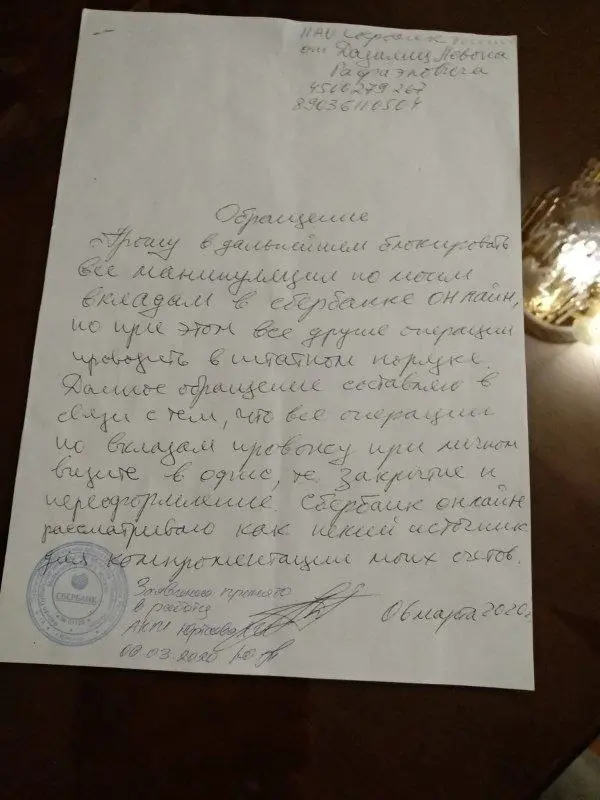 ПАО Сбербанк
от
Рафаэловича
Обращение
Прошу в дальнейшем блокировать
все манипуляции по моим
вкладам в сбербанке онлайн,
но при этом все другие операции
проводить в штатном порядке.
Данное обращение составляю в
связи с тем, что все операции
по вкладам провожу при личном
визите в офис, те. Закрытие и
переоформление. Сбербанк онлайн
рассматриваю как некий источник
для компрометации моих счетов.
СБЕРБАНК
Заявление принято
в работу
06 марта 2020г